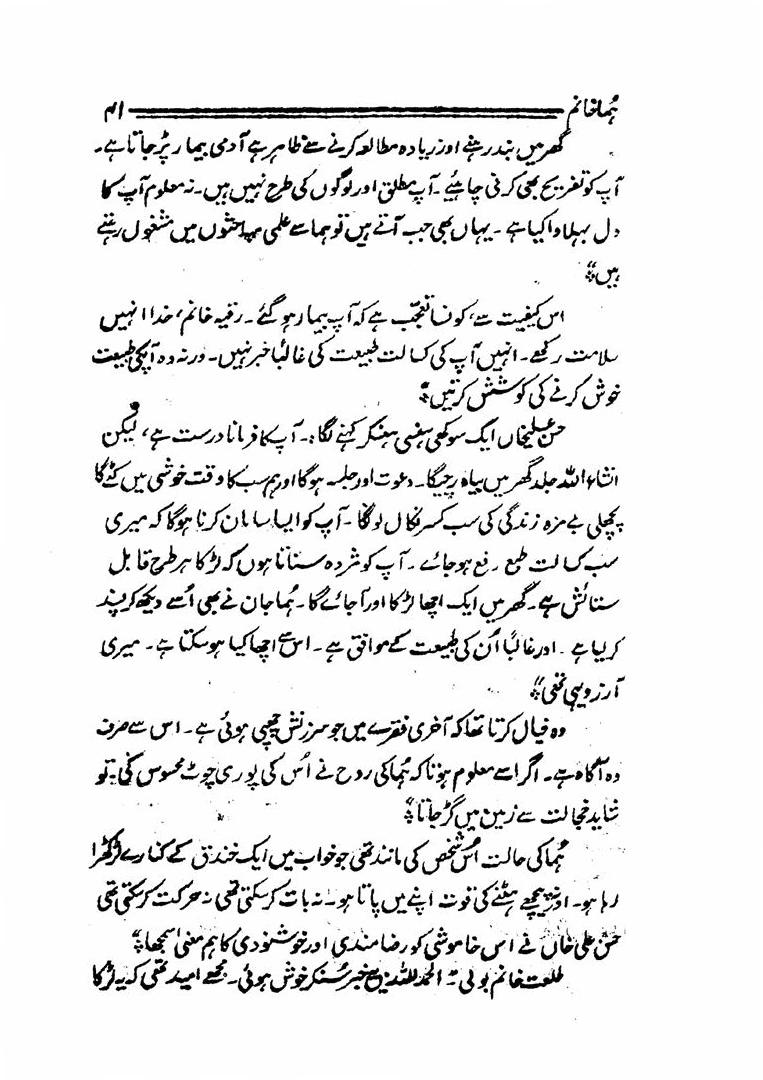 ہما خانم ۴۱
گھر میں بند رہنے اور زیادہ مطالعہ کرنے سے ظاہر ہے آدمی بیمار پڑ جاتا ہے۔
آپ کو تفریح بھی کرنی چاہیئے۔ آپ مطلق اور لوگوں کی طرح نہیں ہیں۔ نہ معلوم آپ کا
دل بہلاوا کیا ہے۔ یہاں بھی جب آتے ہیں تو ہما سے علمی مباحثوں میں مشغول رہتے
ہیں"
اس کیفیت سے، کونسا تعجب ہے کہ آپ بیمار ہو گئے۔ رقیہ خانم، خدا انہیں
سلامت رکھے۔ انہیں آپ کی کسالت طبیعت کی غالباً خبر نہیں۔ ورنہ وہ آپکی طبیعت
خوش کرنے کی کوشش کرتیں"
حسن علیخاں ایک سوکھی ہنسی ہنسکر کہنے لگا۔ آپ کا فرمانا درست ہے، لیکن
انشاءاللہ جلد گھر میں بیاہ رچیگا۔ دعوت اور جلسہ ہوگا اور ہم سب کا وقت خوشی میں کٹے گا
پچھلی بے مزہ زندگی کی سب کسر نکال لونگا۔ آپ کو ایسا سامان کرنا ہوگا کہ میری
سب کسالت طبع رفع ہو جائے۔ آپ کو مژدہ سناتا ہوں کہ لڑکا ہر طرح قابل
ستائش ہے۔ گھر میں ایک اچھا لڑکا اور آ جائے گا۔ ہما جان نے بھی اُسے دیکھ کر پسند
کر لیا ہے۔ اور غالباً اُن کی طبیعت کے موافق ہے۔ اس سے اچھا کیا ہو سکتا ہے۔ میری
آرزو یہی تھی"
وہ خیال کرتا تھا کہ آخری فقرے میں جو سرزنش چھپی ہوئی ہے۔ اس سے صرف
وہ آگاہ ہے۔ اگر اسے معلوم ہوتا کہ ہما کی روح نے اُس کی پوری چوٹ محسوس کی۔ تو
شاید خجالت سے زمین میں گڑ جاتا"
ہما کی حالت اُس شخص کی مانند تھی جو خواب میں ایک خندق کے کنارے لڑکھڑا
رہا ہو۔ اور پیچھے ہٹنے کی قوت اپنے میں پاتا ہو۔ نہ بات کر سکتی تھی نہ حرکت کر سکتی تھی
حسن علی خاں نے اس خاموشی کو رضامندی اور خوشنودی کا ہم معنی سمجھا"
طلعت خانم بولی" الحمد للہ یہ خبر سنکر خوش ہوئی۔ مجھے امید تھی کہ یہ لڑکا